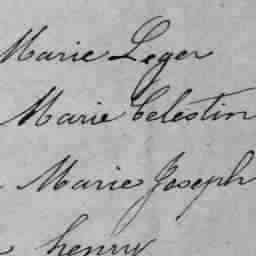 Marie Leger
Marie Celestin
Marie Joseph
henry